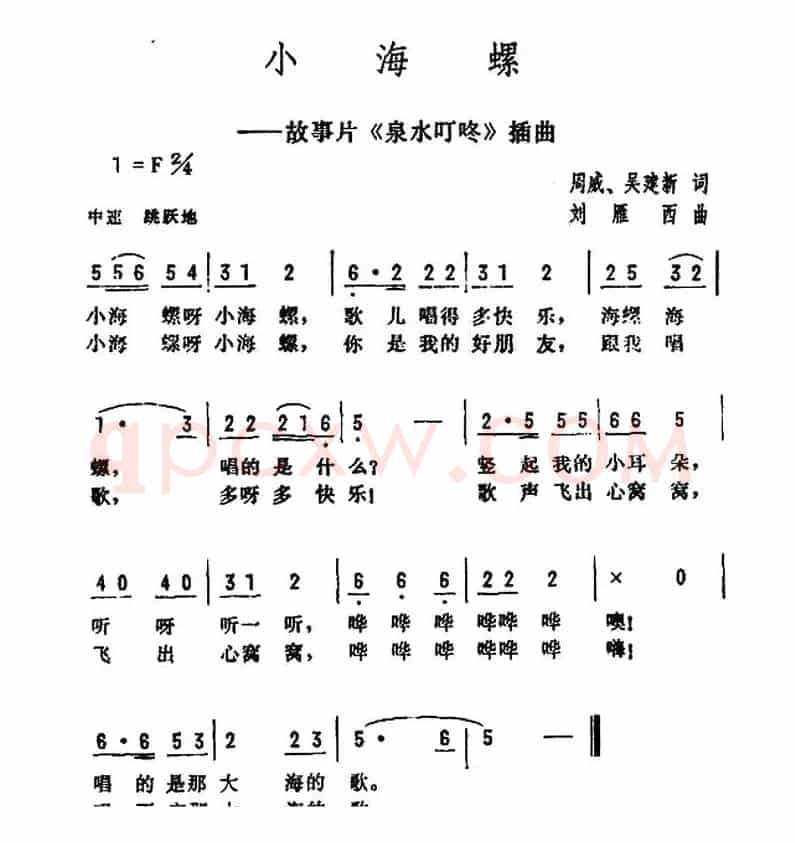 小海螺
——故事片《泉水叮咚》插曲
1=F 2/4
周威、吴建新 词
中速 跳跃地
刘雁西 曲
5 5 6 5 4 | 3 1 2 | 6 · 2 2 2 | 3 1 2 | 2 5 3 2 |
小海 螺呀 小海 螺， 歌 儿 唱得 多快 乐， 海螺 海
小海 螺呀 小海 螺， 你 是 我的 好朋 友， 跟我 唱
1 · 3 | 2 2 2 1 6 | 5 — | 2 · 5 5 5 | 6 6 5 |
螺， 唱的 是 什 么？ 竖 起 我的 小耳 朵，
歌， 多呀 多 快 乐！ 歌 声 飞出 心窝 窝，
qpcxw.com
4 0 4 0 | 3 1 2 | 6 6 6 | 2 2 2 | × 0 |
听 呀 听一 听， 哗 哗 哗 哗哗 哗 噢！
飞 出 心窝 窝， 哗 哗 哗 哗哗 哗 嗨！
6 · 6 5 3 | 2 2 3 | 5 · 6 | 5 — ‖
唱 的 是那 大 海的 歌。